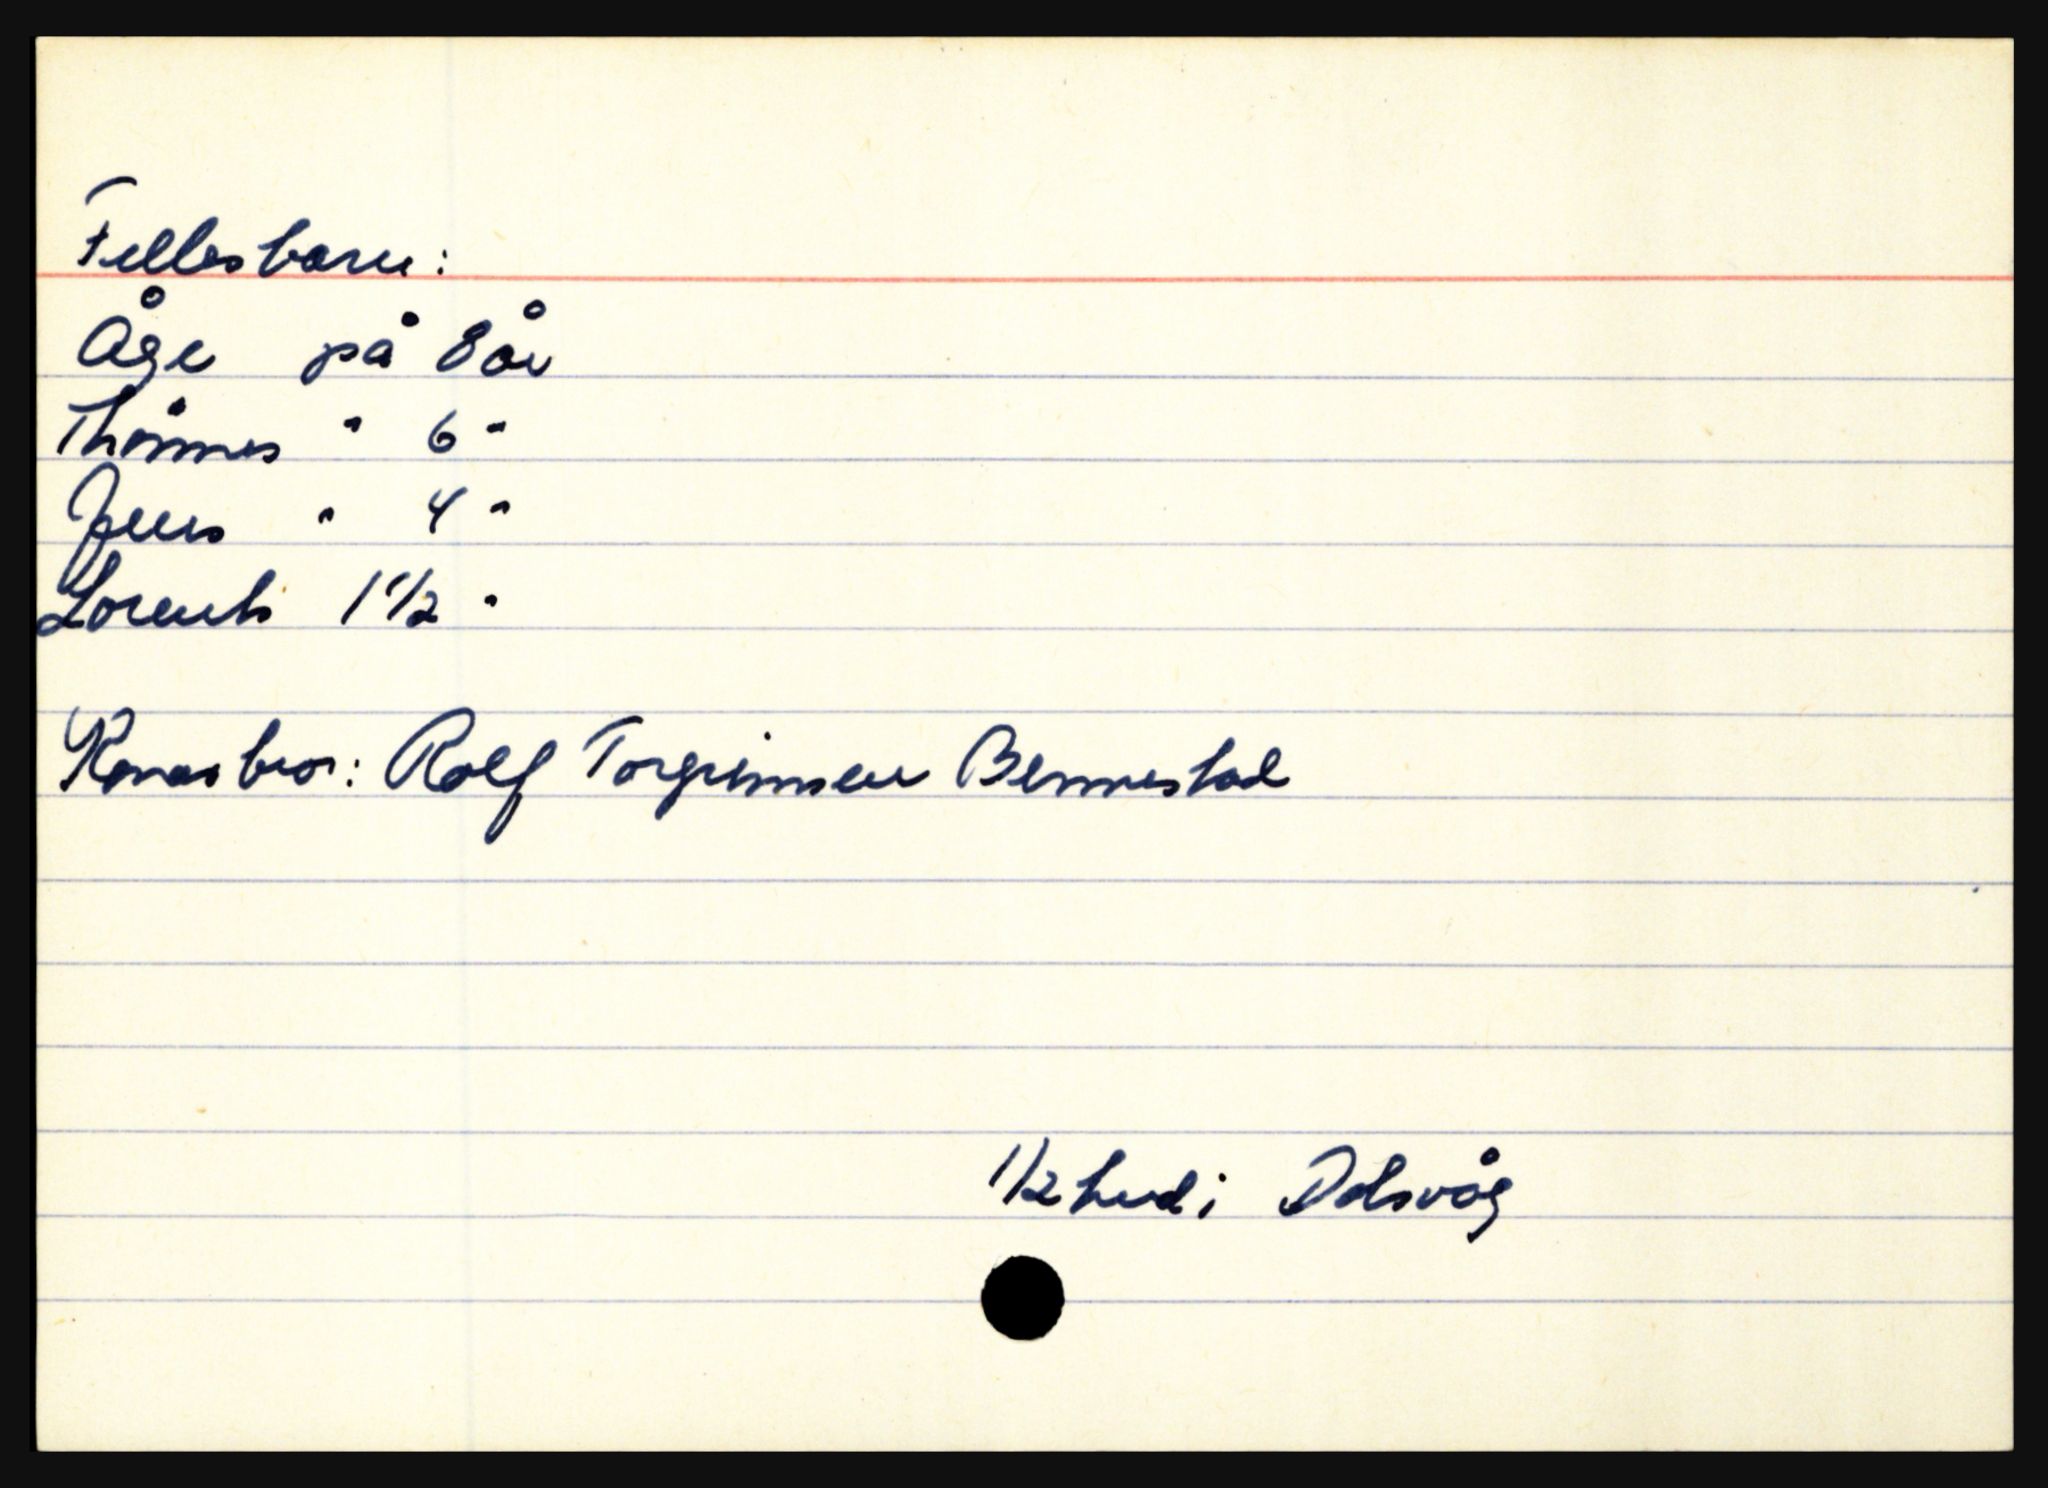 Fellesbarn:
Åge på 8 år
Thønnes " 6 "
Jens " 4 "
Lorents 1 1/2 "
Konas bror: Rolf Torgrimsen Bennestad
1/2 hud i Dolsvåg